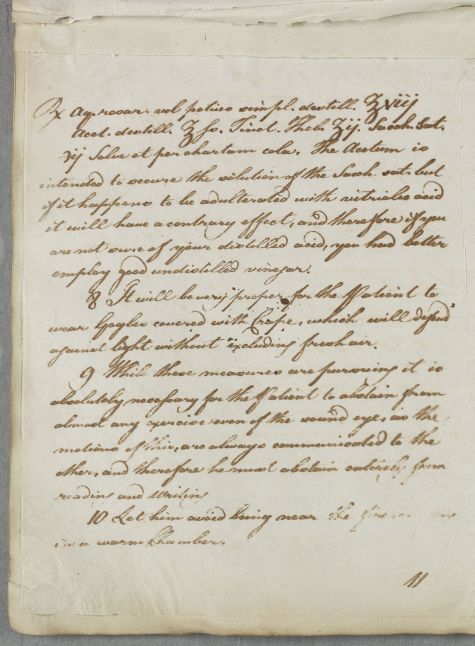 ℞ Aq. rosar. vel potius simpl. destill. ℥viij
Acet. destill. ℥ſs. Tinct. Theb. ʒij. Sacch. Sat.
vij Solve et per chartam cola. The Acetum is
intended to secure the solution of the Sacch. sat. but
if it happens to be adulterated with vitriolic acid
it will have a contrary effect, and therefore if you
are not sure of your distilled acid, you had better
employ good undistilled vinegar.
8 It will be very proper for the Patient to
wear Gogles covered with Crape, which will defend
against light without excluding fresh air.
9 While these measures are pursuing it is
absolutely necessary for the Patient to abstain from
almost any exercise even of the sound eye, as the
motions of this, are always communicated to the
other, and therefore he must abstain entirely from
reading and writing
10 Let him avoid being near the fire or
in a warm Chamber.
11